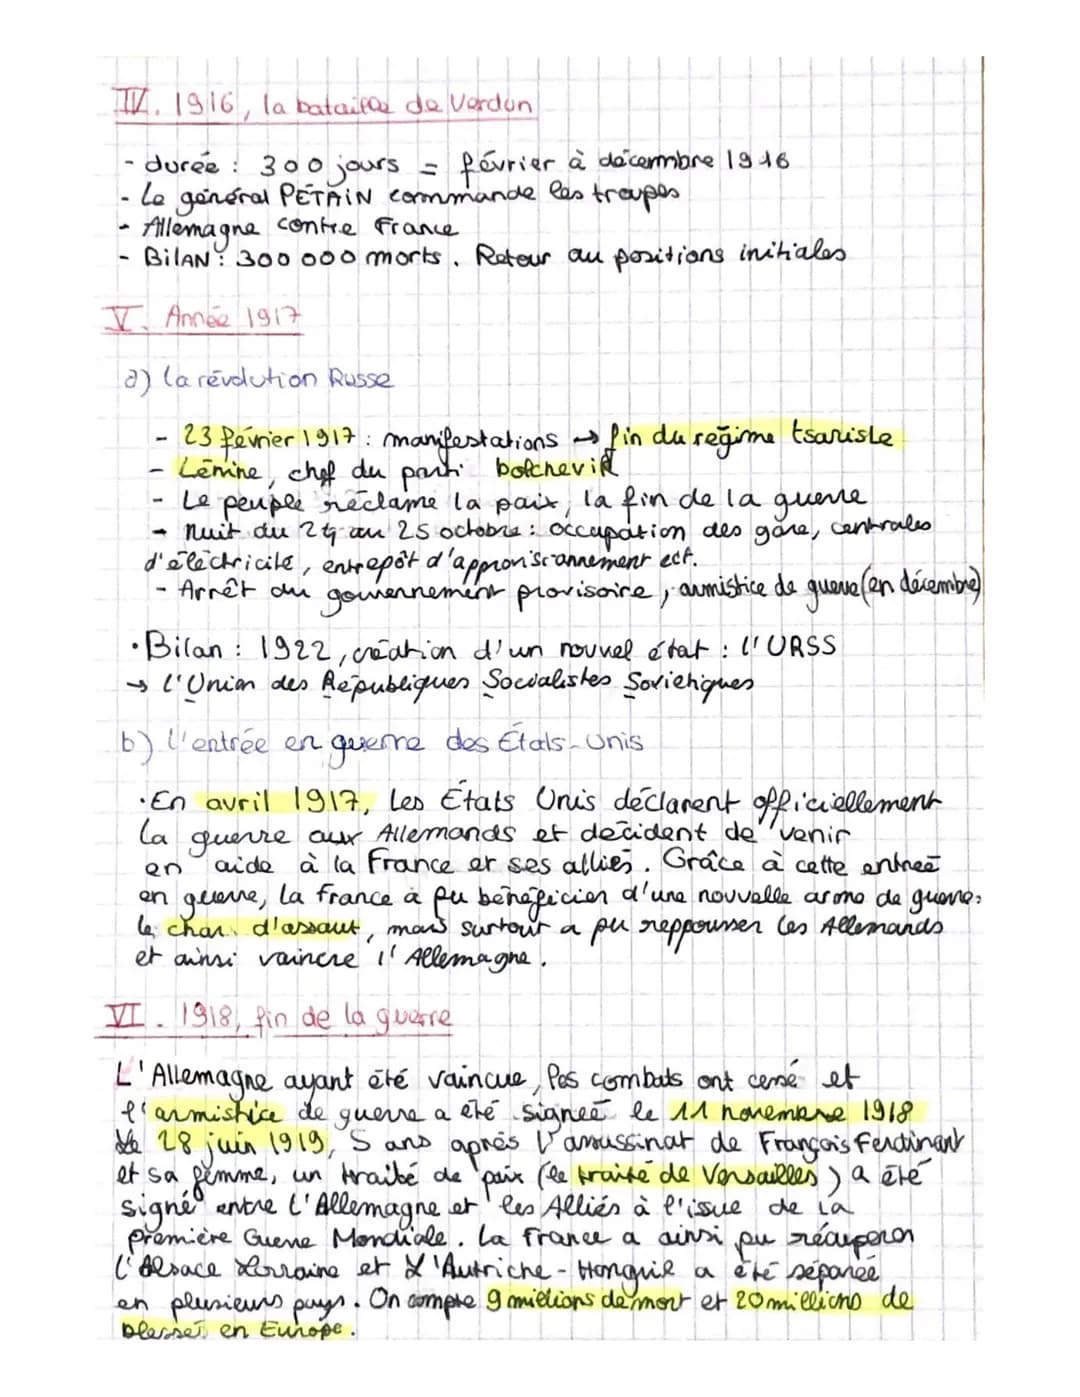 IV. 1916, la bataille de Verdun
- durée : 300 jours = février à décembre 1916
- Le général PETAIN commande les troupes
- Allemagne contre France
- BilAN : 300 000 morts. Retour au positions initiales
V. Année 1917
a) la révolution Russe
- 23 février 1917 : manifestations → fin du régime tsariste
- Lénine, chef du parti bolchevik
- Le peuple réclame la paix, la fin de la guerre
- Nuit du 24 au 25 octobre : occupation des gare, centrales
d'éléctricité, entrepôt d'approvisionnement ect.
- Arrêt du gouvernement provisoire, armistice de guerre (en décembre)
• Bilan : 1922, création d'un nouvel état : l'URSS
→ L'Union des Républiques Socialistes Soviétiques
b) L'entrée en guerre des États-Unis
• En avril 1917, les États Unis déclarent officiellement
la guerre aux Allemands et décident de venir
en aide à la France et ses alliés. Grâce à cette entreé
en guerre, la France à pu bénéficier d'une nouvelle arme de guerre:
le char d'assaut, mais surtout a pu reppousser les Allemands
et ainsi vaincre l'Allemagne.
VI. 1918, fin de la guerre
L'Allemagne ayant été vaincue, les combats ont cessé et
l'armistice de guerre a été signeé le 11 novembre 1918
Le 28 juin 1919, 5 ans après l'assassinat de François Ferdinant
et sa femme, un traité de paix (le traité de Versailles) a été
signé entre l'Allemagne et les Alliés à l'issue de la
Première Guerre Mondiale. La France a ainsi pu récuperer
l'Alsace Lorraine et L'Autriche-Hongrie a été séparée
en plusieurs pays. On compte 9 millions de mort et 20 millions de
blessés en Europe.